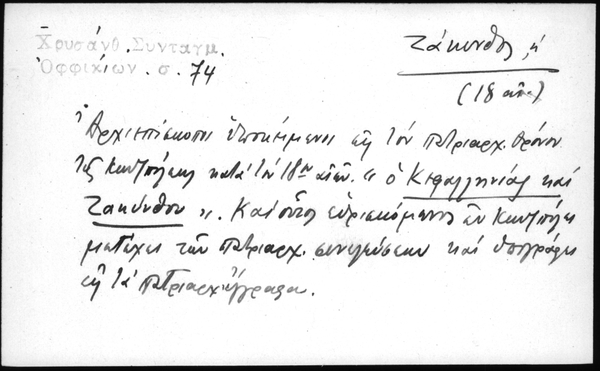 Χρυσάνθ. Συνταγμ.
Ὀφφικίων. σ. 74
Ζάκυνθος, ἡ
(18 αἰών)
Ἀρχιεπίσκοποι ὑποκείμενοι εἰς τὸν πατριαρχ. θρόνον
τῆς Κωνζπόλεως κατὰ τὸν 18ον αἰῶν. "ὁ Κεφαλληνίας καὶ
Ζακύνθου". Καὶ οὗτος εὑρισκόμενος ἐν Κωνζπόλει
μετέχει τῶν πατριαρχ. συνελεύσεων καὶ ὑπογράφει
εἰς τὰ πατριαρχ. ἔγγραφα.